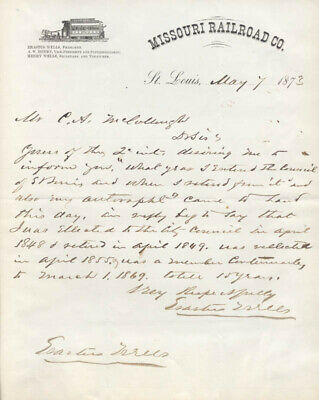 MISSOURI RAILROAD CO.
ERASTUS WELLS, PRESIDENT.
HENRY WELLS, SECRETARY AND TREASURER.
St. Louis, May 7 1873
Mr C. A. McCollough
D Sir
Yours of the 2d inst, desiring me to
inform you, "What year I Entered the Council
of St Louis and when I retired from it and
also my autograph" came to hand
this day, in reply beg to say that
I was Elected to the City Council in April
1848 & retired in April 1849. was reelected
in April 1855. was a member Continually
to March 1. 1869. total 15 years.
Very Respectfully
Erastus Wells
Erastus Wells